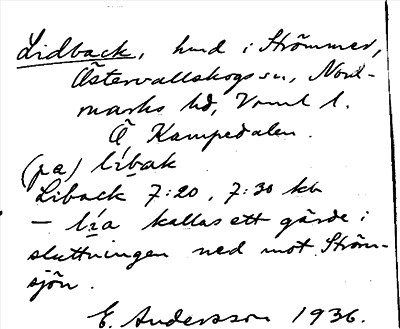 Lidback, hmd i Strömmer,
Östervallskogs sn, Nord-
marks hd, Vrml l.
Å Kampedalen.
(på) líbak
Liback 7:20, 7:30 kb
– lía kallas ett gärde i
sluttningen ned mot Ström-
sjön.
E. Andersson 1936.